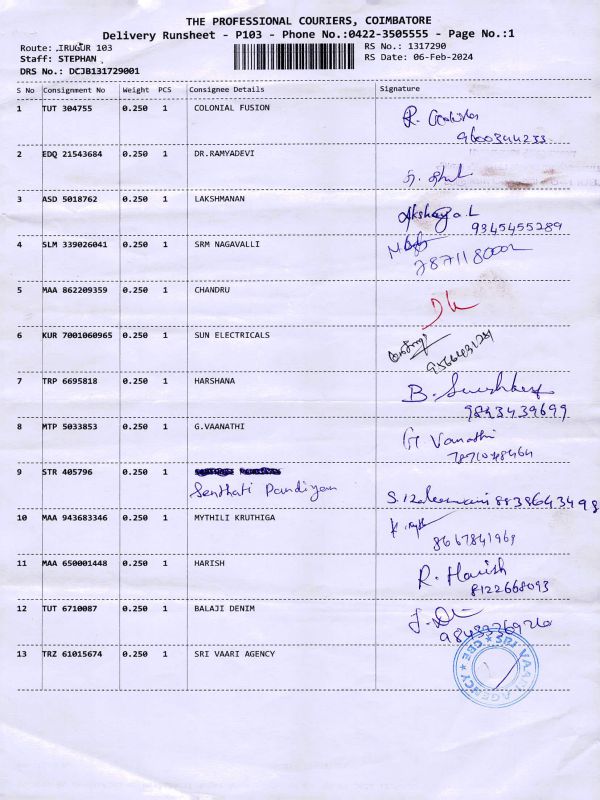 THE PROFESSIONAL COURIERS, COIMBATORE
Delivery Runsheet - P103 - Phone No.:0422-3505555 - Page No.:1
Route: IRUGUR 103 RS No.: 1317290
Staff: STEPHAN RS Date: 06-Feb-2024
DRS No.: DCJB131729001
S No Consignment No Weight PCS Consignee Details Signature
1 TUT 304755 0.250 1 COLONIAL FUSION R.
9600344233
2 EDQ 21543684 0.250 1 DR.RAMYADEVI
3 ASD 5018762 0.250 1 LAKSHMANAN Akshaya.L
9345455289
4 SLM 339026041 0.250 1 SRM NAGAVALLI
5 MAA 862209359 0.250 1 CHANDRU
6 KUR 7001060965 0.250 1 SUN ELECTRICALS
7 TRP 6695818 0.250 1 HARSHANA B.
9843439699
8 MTP 5033853 0.250 1 G.VAANATHI G Vanathi
9 STR 405796 0.250 1
Senthati Pandiyan 8838643498
10 MAA 943683346 0.250 1 MYTHILI KRUTHIGA
8667841969
11 MAA 650001448 0.250 1 HARISH R. Harish
8122668093
12 TUT 6710087 0.250 1 BALAJI DENIM
13 TRZ 61015674 0.250 1 SRI VAARI AGENCY
SRI VAARI AGENCY CBE